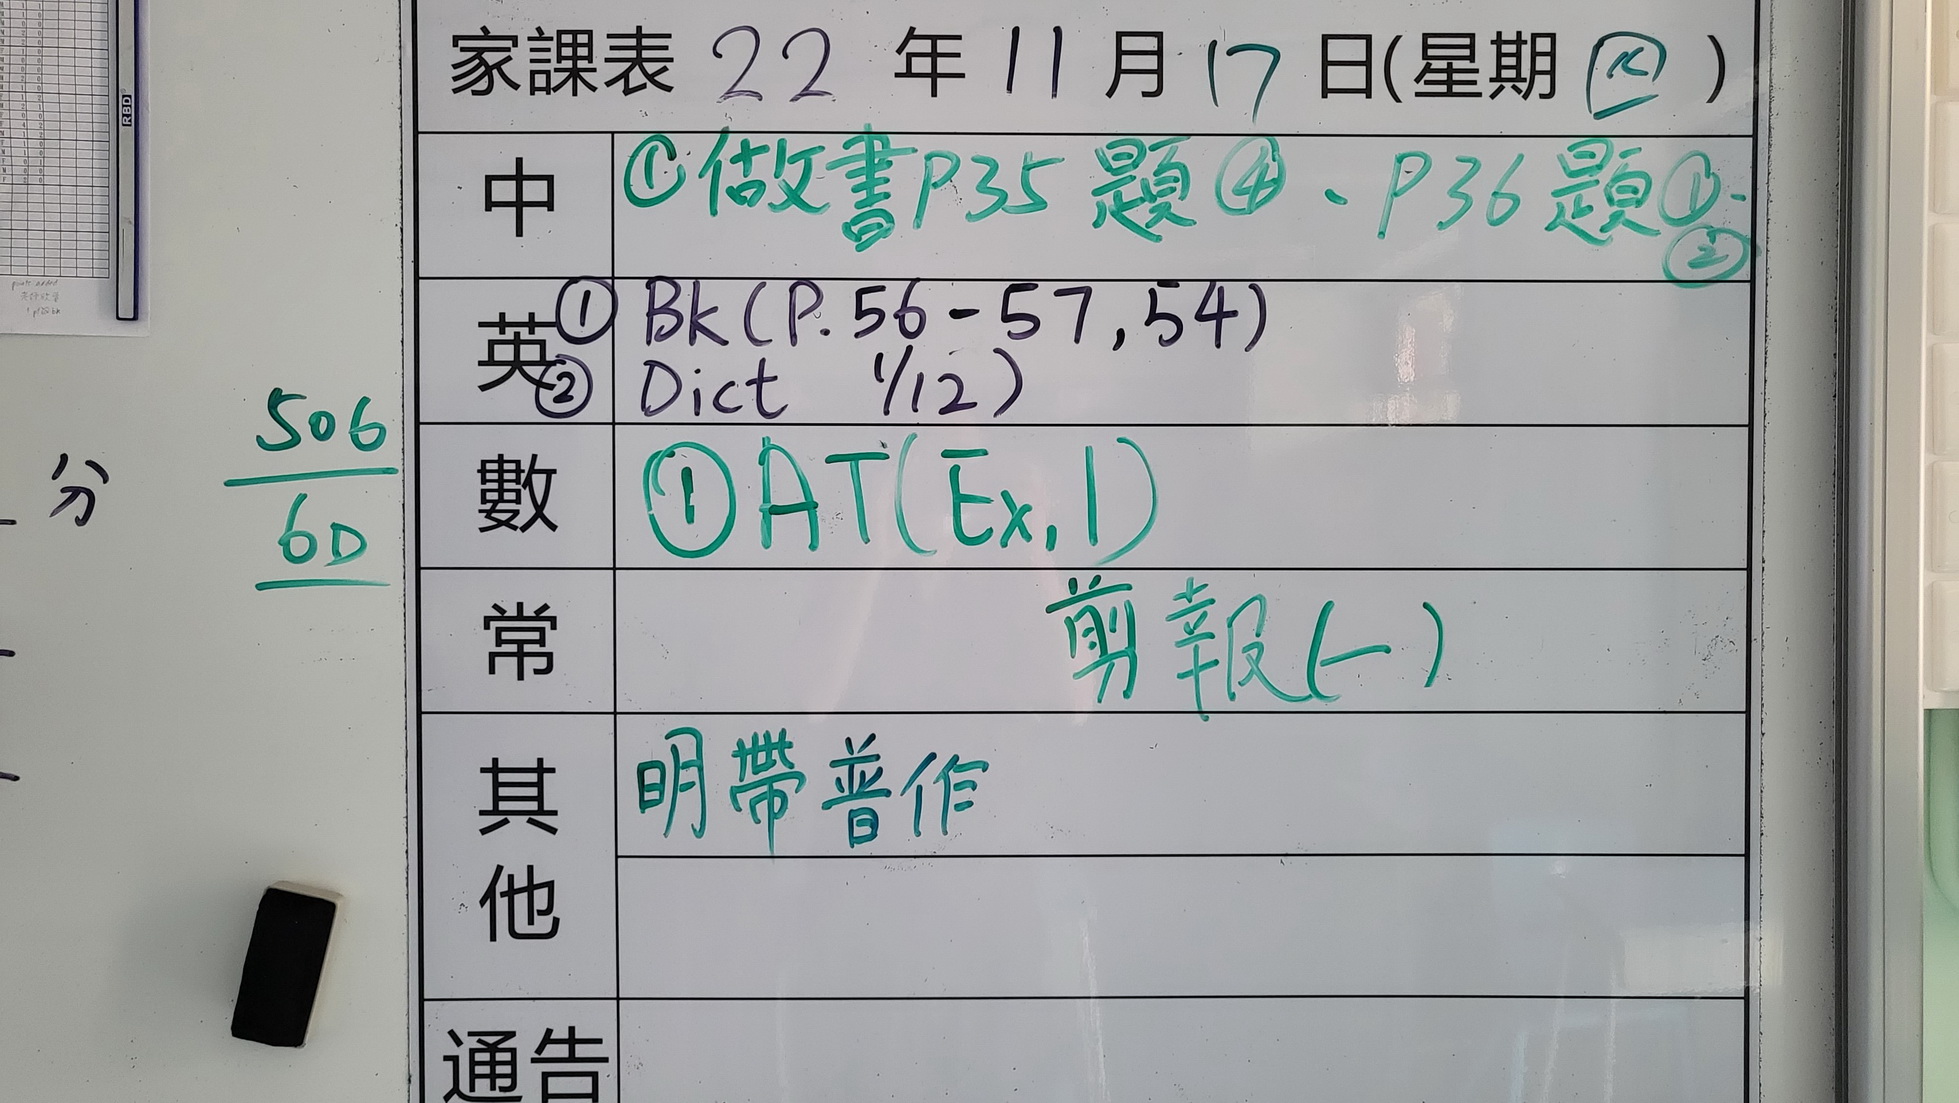 家課表 22 年 11 月 17 日(星期 四 )
中 ①做書P35題④、P36題①-
②
英 ① Bk(P.56-57,54)
② Dict 1/12)
數 ①AT(Ex,1)
常 剪報(一)
其他 明帶普作
通告
分
506
6D
RBD